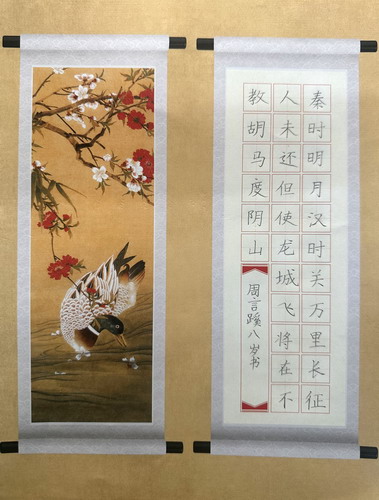 秦时明月汉时关万里长征
人未还但使龙城飞将在不
教胡马度阴山
周言蹊八岁书